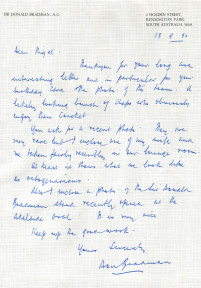 SIR DONALD BRADMAN, A.C.
2 HOLDEN STREET,
KENSINGTON PARK,
SOUTH AUSTRALIA 5068
Dear Nigel
Thankyou for your long and
interesting letter and in particular for your
the photo of the team. A
likely looking bunch of chaps who obviously
enjoy their cricket
You ask for a recent photo. They are
very rare but I enclose one of my wife and
me taken fairly recently in our lounge room
At least it shows what we look like
as octogenarians.
Also I enclose a photo of the Sir Donald
Bradman stand recently opened at the
Adelaide Oval. It is very nice
Keep up the good work.
Yours Sincerely
Don Bradman